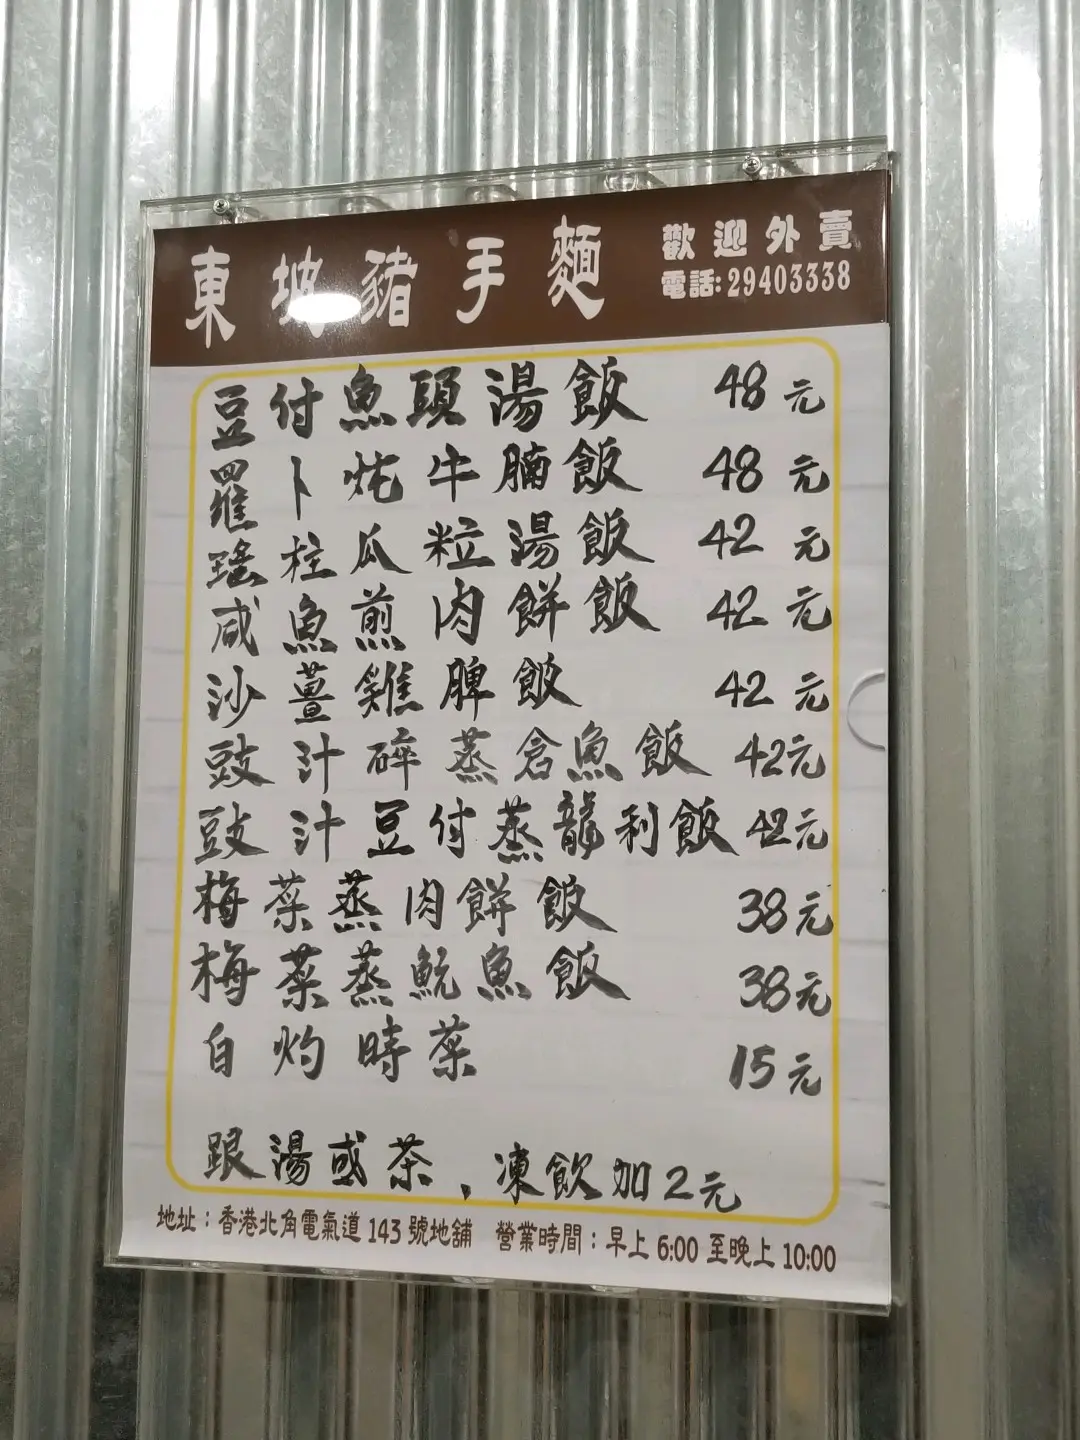 東坡豬手麵
歡迎外賣
電話:29403338
豆付魚頭湯飯 48元
羅卜炖牛腩飯 48元
瑤柱瓜粒湯飯 42元
咸魚煎肉餅飯 42元
沙薑雞脾飯 42元
豉汁碎蒸倉魚飯 42元
豉汁豆付蒸龍利飯 42元
梅菜蒸肉餅飯 38元
梅菜蒸魷魚飯 38元
白灼時菜 15元
跟湯或茶、凍飲加2元
地址：香港北角電氣道 143 號地舖 營業時間：早上 6:00 至晚上 10:00